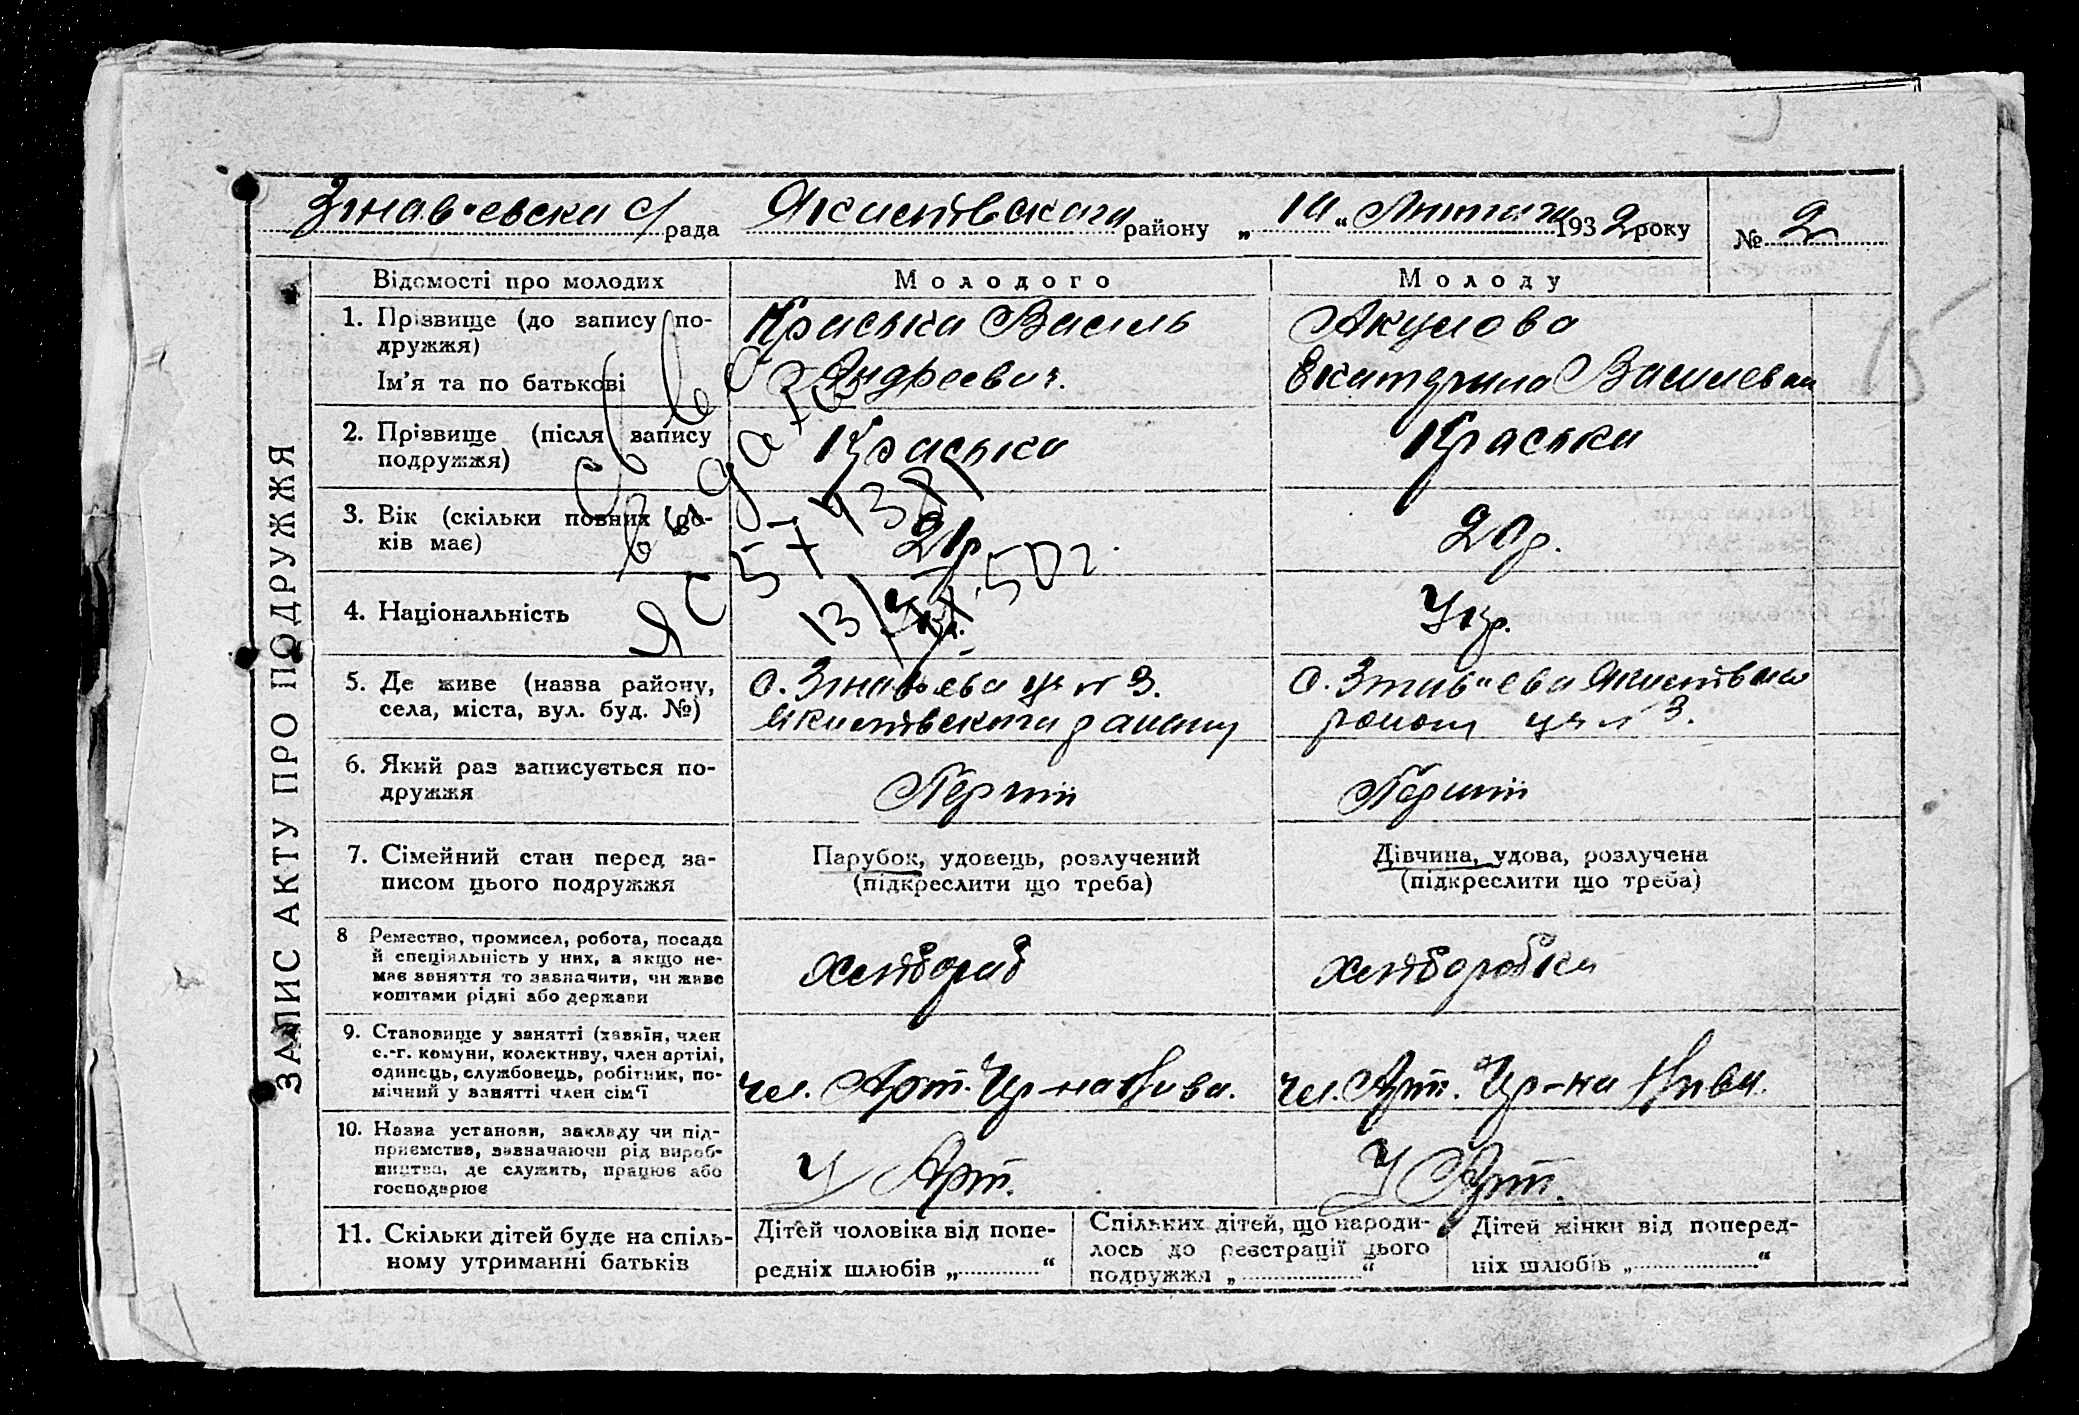 ЗАПИС АКТУ ПРО ПОДРУЖЖЯ
рада району „ “ 1932 року № 2
Відомості про молодих
Молодого
Молоду
1. Прізвище (до запису по-
дружжя)
Ім'я та по батькові
Краська Василь
Андреевич.
Акулова
Екатерина Василевна
2. Прізвище (після запису
подружжя)
Краська
Краська
3. Вік (скільки повних ро-
ків має)
21р
20р.
4. Національність
Укр.
Укр.
5. Де живе (назва району,
села, міста, вул. буд. №)
с. 3.
району
с. 3.
6. Який раз записується по-
дружжя
Перший
Перший
7. Сімейний стан перед за-
писом цього подружжя
Парубок, удовець, розлучений
(підкреслити що треба)
Дівчина, удова, розлучена
(підкреслити що треба)
8 Ремество, промисел, робота, посада
й спеціяльність у них, а якщо не-
має заняття то зазначити, чи живе
коштами рідні або держави
хлібороб
хліборобка
9. Становище у занятті (хазяїн, член
с.-г. комуни, колективу, член артілі,
одинець, службовець, робітник, по-
мічний у занятті член сім'ї
чл. Арт. Чр-на Нива.
чл. Арт. Чр-на Нива.
10. Назва установи, закладу чи під-
приємства, зазначаючи рід вироб-
ництва, де служить, працює або
господарює
У Арт.
У Арт.
11. Скільки дітей буде на спіль-
ному утриманні батьків
Дітей чоловіка від попе-
редніх шлюбів „ “
Спільних дітей, що народи-
лось до реєстрації цього
подружжя „ “
Дітей жінки від поперед-
ніх шлюбів „ “
Св-во
выдато
50г